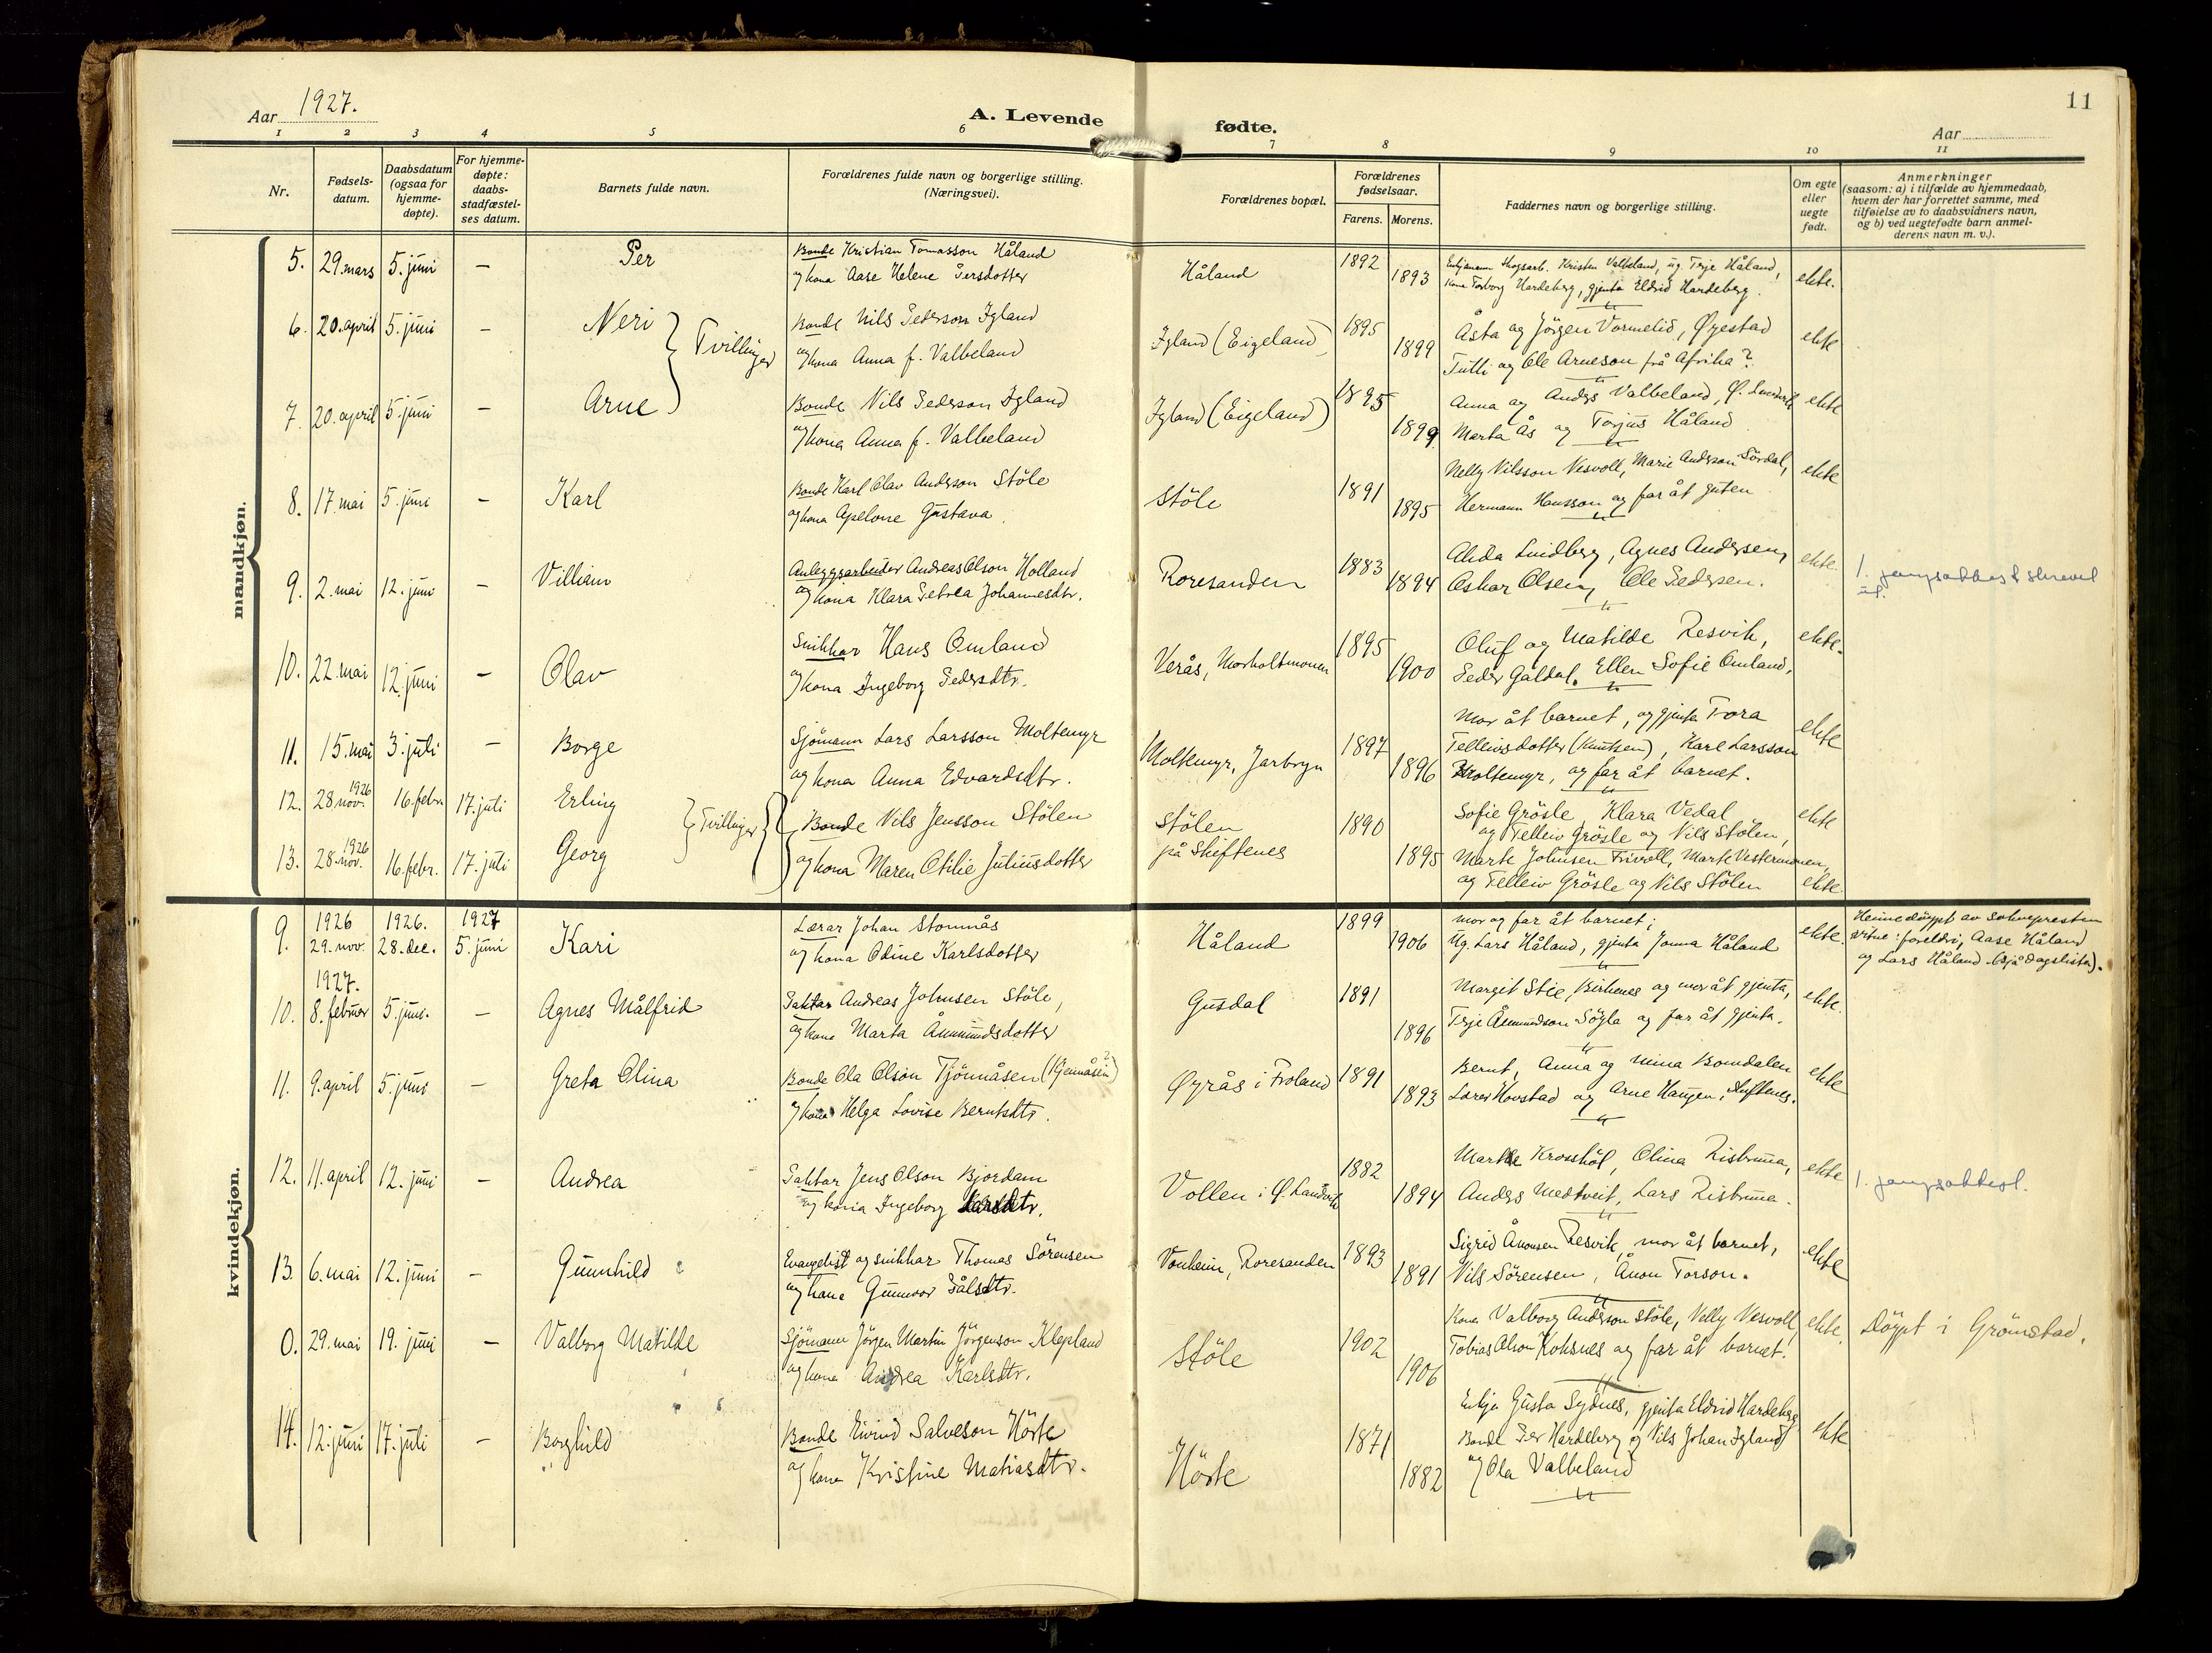 11
Aar 1927.
A. Levende fødte.
Aar
1 2 3 4 5 6 7 8 9 10 11
Nr.
Fødsels-
datum.
Daabsdatum
(ogsaa for
hjemme-
døpte).
For hjemme-
døpte:
daabs-
stadfæstel-
ses datum.
Barnets fulde navn.
Forældrenes fulde navn og borgerlige stilling.
(Næringsvei).
Forældrenes bopæl.
Forældrenes
fødselsaar.
Farens. Morens.
Faddernes navn og borgerlige stilling.
Om egte
eller
uegte
født.
Anmerkninger
(saasom: a) i tilfælde av hjemmedaab,
hvem der har forrettet samme, med
tilføielse av to daabsvidners navn,
og b) ved uegtefødte barn anmel-
derens navn m. v.).
mandkjøn.
5. 29. mars 5. juni – Per
Bonde Kristian Tomasson Håland
og kona Aase Helene Persdotter
Håland 1892 1893
Skogsarb. Kristen Valbeland, ug. Terje Håland,
kona Torborg Hardeberg, gjenta Eldrid Hardeberg.
ekte.
6. 20. april 5. juni – Neri
Tvillinger
Bonde Nils Pederson Igland
og kona Anna f. Valbeland
Igland (Eigeland) 1895 1899
Åsta og Jörgen Vormelid, Øyestad
Tutti og Ole Arneson frå Afrika?
ekte
7. 20. april 5. juni – Arne
Bonde Nils Pederson Igland
og kona Anna f. Valbeland
Igland (Eigeland) 1895 1899
Anna og Anders Valbeland, Ø. Landvik
Marta Ås og Torjus Håland
ekte
8. 17. mai 5. juni – Karl
Bonde Karl Olav Anderson Stöle
og kona Apelone Gustava.
Stöle 1891 1895
Nelly Nilsson Vesvoll, Marie Anderson Sördal,
Hermann Hansson og far åt guten
ekte
9. 2. mai 12. juni – Villiam
Anleggsarbeider Andreas Olson Holland
og kona Klara Petrea Johannesdtr.
Roresanden 1883 1894
Alida Lindberg, Agnes Andersen,
Oskar Olsen, Ole Pedersen.
ekte.
10. 22. mai 12. juni – Olav
Snikkar Hans Omland
og kona Ingeborg Pedersdtr.
Verås, Morholtmonen 1895 1900
Oluf og Matilde Resvik,
Peder Galdal. Ellen Sofie Omland,
ekte.
11. 15. mai 3. juli – Borge
Sjömann Lars Larsson Moltemyr
og kona Anna Edvardsdtr.
Moltemyr, Jarbryn 1897 1896
Mor åt barnet, og gjenta Tora
Telleivsdotter (Knutsen), Karl Larsson
Moltemyr, og far åt barnet.
ekte
12. 28. nov. 1926 16. febr. 17. juli Erling
Tvillinger
Bonde Nils Jensson Stölen
Stölen
på Skiftenes 1890
Sofie Grösle, Klara Vedal
og Telleiv Grösle og Nils Stölen,
ekte
13. 28. nov. 1926 16. febr. 17. juli Georg
og kona Maren Otilie Juliusdotter
1895
Marte Johnsen Trivoll, Marte Vestermonen,
og Telleiv Grösle og Nils Stölen
ekte.
kvindekjøn.
9. 1926 29. nov. 1926. 28. dec. 1927 5. juni Kari
Lærar Johan Stomnås
og kona Odine Karlsdotter
Håland 1899 1906
mor og far åt barnet;
Ug. Lars Håland, gjenta Jonna Håland
ekte.
Heimedöypt av soknepresten
vitne: foreldri, Aase Håland
og Lars Håland. (sjå dagslista).
1927.
10. 8. februar 5. juni. – Agnes Målfrid
Paktar Andreas Johnsen Stöle,
og kona Marta Åmundsdotter
Gusdal 1891 1896
Margit Stie, Birkenes og mor åt gjenta,
Terje Åmundson Söyla og far åt gjenta.
ekte.
11. 9. april 5. juni – Greta Olina
Bonde Ola Olson Tjönnåsen
og kona Helga Lovise Berntsdtr.
Øyrås i Froland 1891 1893
Bernt, Anna og Mina Bomdalen
Lærer Hovstad og Arne Haugen,
ekte
12. 11. april 12. juni – Andrea
Paktar Jens Olson Bjordam
og kona Ingeborg Larsdtr.
Vollen i Ø. Landvik 1882 1894
Marthe Krosshöl, Olina Risbruna,
Anders Medtveit, Lars Risbruna.
ekte
13. 6. mai 12. juni – Gunnhild
Evangelist og snikkar Thomas Sörensen
og kona Gunnvor Pålsdtr.
Vonheim, Roresanden 1893 1891
Sigrid Ånonsen Resvik, mor åt barnet,
Nils Sörensen, Ånon Torson.
ekte
0. 29. mai 19. juni – Valborg Matilde
Sjömann Jörgen Martin Jörgenson Klepland
og kona Andrea Karlsdtr.
Stöle 1902 1906
Kona Valborg Anderson Stöle, Nelly Vesvoll,
Tobias Olson Koksnes og far åt barnet.
ekte.
Döypt i Grömstad.
14. 12. juni 17. juli – Borghild
Bonde Eivind Salveson Hörte
og kona Kristine Matiasdtr.
Hörte 1871 1882
Enkja Gusta Sydnes, gjenta Eldrid Hardeberg
Bonde Per Hardeberg og Nils Johan Igland
og Ola Valbeland
ekte